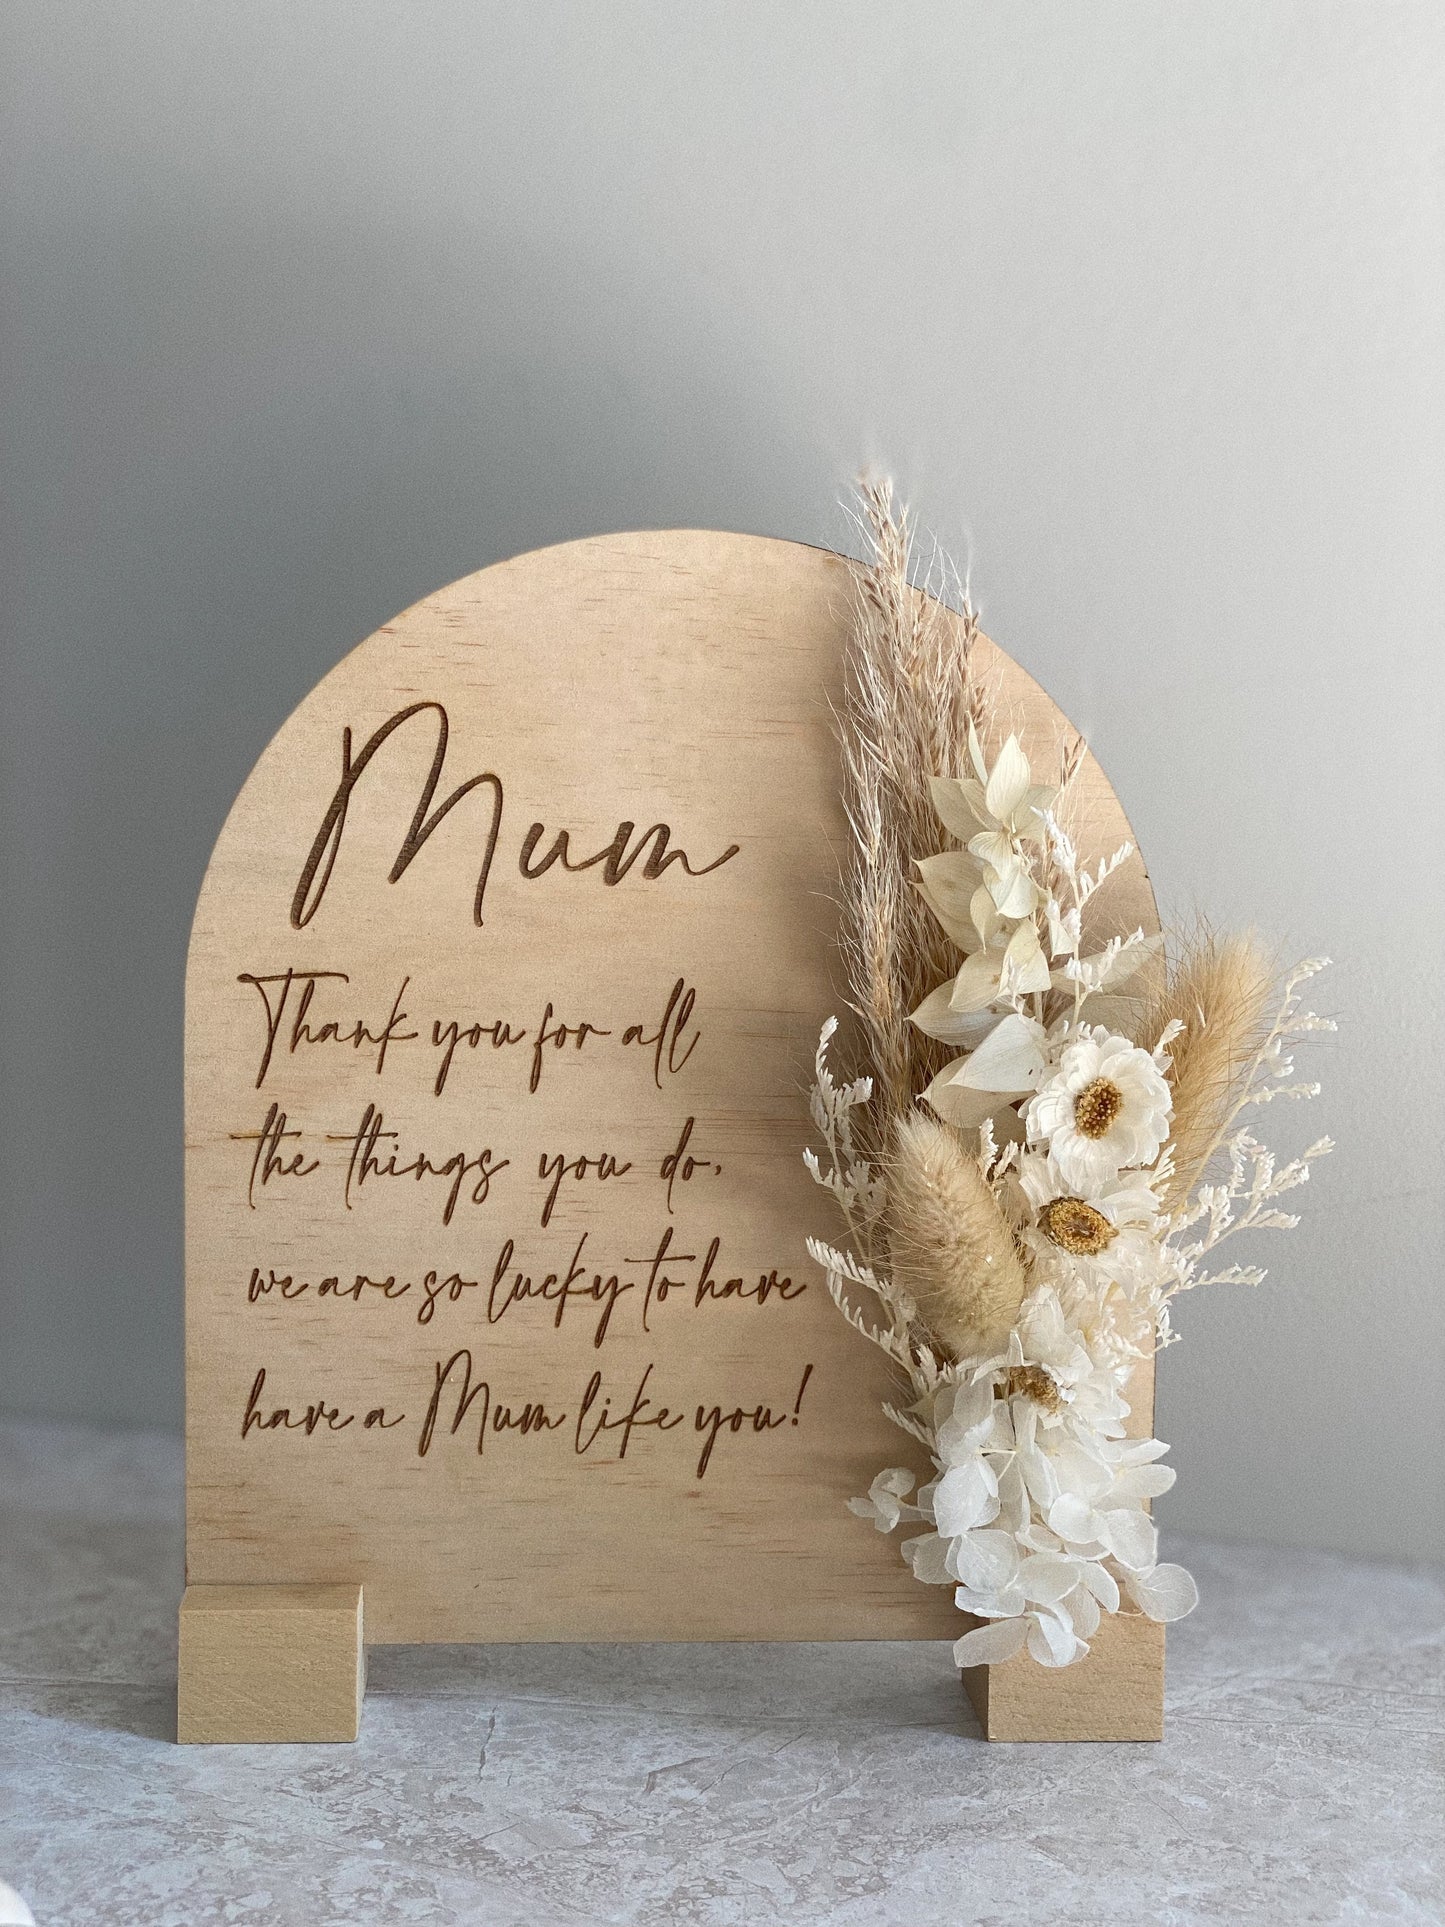 Mum
Thank you for all
the things you do,
we are so lucky to have
have a Mum like you!